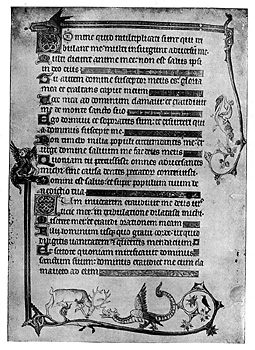 Domine quid multiplicati sunt qui tri
bulant me: multi insurgunt adversum me
Multi dicunt anime mee: non est salus ipsi
in deo eius
Tu autem domine susceptor meus es: gloria
mea et exaltans caput meum
Voce mea ad dominum clamavi: et exaudivit
me de monte sancto suo
Ego dormivi et soporatus sum: et exsurrexi qui
a dominus suscepit me
Non timebo milia populi circumdantis me: ex
surge domine salvum me fac deus meus
Quoniam tu percussisti omnes adversantes
michi sine causa: dentes peccatorum contrivisti
Domini est salus: et super populum tuum be
nedictio tua
Cum invocarem exaudivit me deus ius
ticie mee: in tribulatione dilatasti michi
Miserere mei: et exaudi orationem meam
Filii hominum usquequo gravi corde: ut quid
diligitis vanitatem et queritis mendacium
Et scitote quoniam mirificavit dominus
sanctum suum: dominus exaudiet me cum cla
mavero ad eum